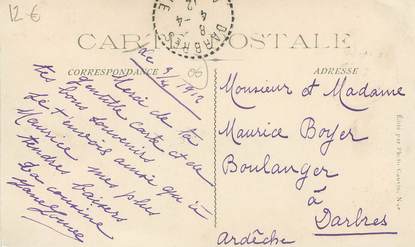 12 €
CARTE POSTALE
CORRESPONDANCE
ADRESSE
DARBRES
8-4
12
06
le 3/4/1912
Merci de ta
gentille carte et de
tes bons souvenirs
je t'envoie ainsi qu'à
Maurice mes plus
tendres baisers
Ta cousine
Monsieur et Madame
Maurice Boyer
Boulanger
à
Darbres
ardèche